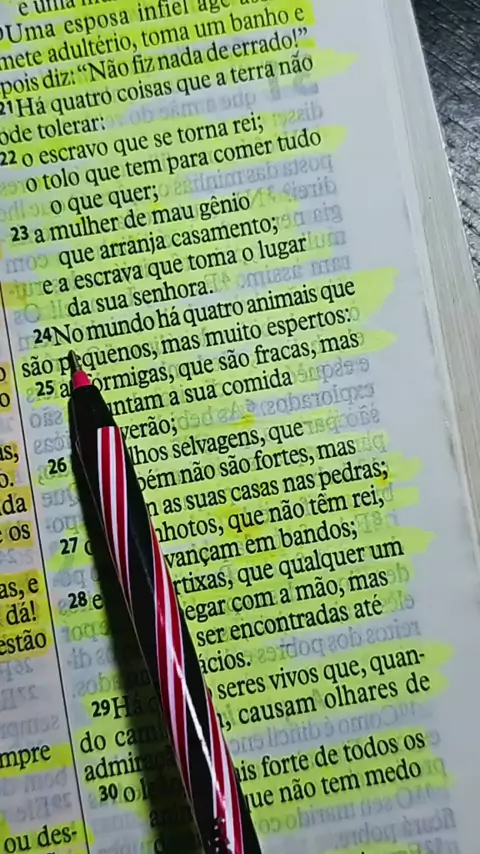 Uma esposa infiel age
mete adultério, toma um banho e
pois diz: “Não fiz nada de errado!”
21 Há quatro coisas que a terra não
ode tolerar:
22 o escravo que se torna rei;
o tolo que tem para comer tudo
o que quer;
23 a mulher de mau gênio
que arranja casamento;
e a escrava que toma o lugar
da sua senhora.
24 No mundo há quatro animais que
são pequenos, mas muito espertos:
25 ormigas, que são fracas, mas
untam a sua comida
verão;
26 lhos selvagens, que
bém não são fortes, mas
as suas casas nas pedras;
27 nhotos, que não têm rei,
vançam em bandos;
28 e rtixas, que qualquer um
egar com a mão, mas
ser encontradas até
ácios.
29 Há seres vivos que, quan-
do cam , causam olhares de
admira
30 o is forte de todos os
que não tem medo
as,
o.
da
e os
as, e
dá!
estão
mpre
ou des-